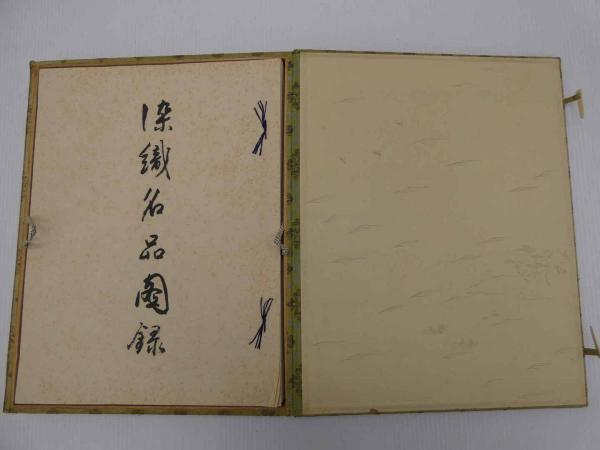 染織名品図録